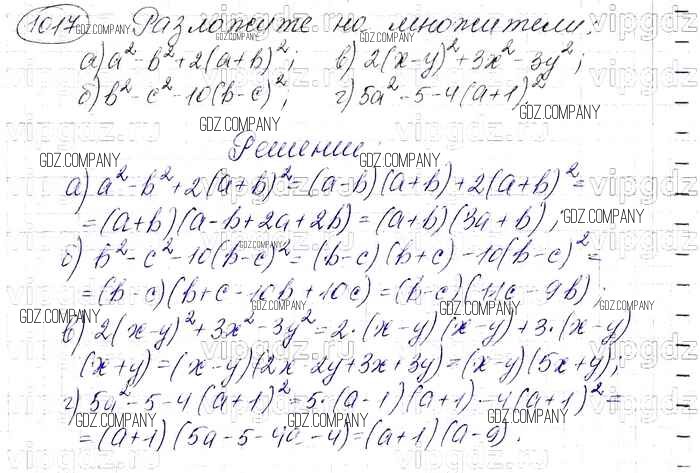 1017 Разложите на множители:
а) a² - b² + 2(a+b)²; в) 2(x-y)² + 3x² - 3y²;
б) b² - c² - 10(b-c)²; г) 5a² - 5 - 4(a+1)²
GDZ.COMPANY
Решение:
а) a² - b² + 2(a+b)² = (a-b)(a+b) + 2(a+b)² =
= (a+b)(a-b+2a+2b) = (a+b)(3a+b);
б) b² - c² - 10(b-c)² = (b-c)(b+c) - 10(b-c)² =
= (b-c)(b+c-10b+10c) = (b-c)(11c-9b).
в) 2(x-y)² + 3x² - 3y² = 2·(x-y)(x-y) + 3·(x-y)
(x+y) = (x-y)(2x-2y+3x+3y) = (x-y)(5x+y);
г) 5a² - 5 - 4(a+1)² = 5·(a-1)(a+1) - 4(a+1)² =
= (a+1)(5a-5-4a-4) = (a+1)(a-9).